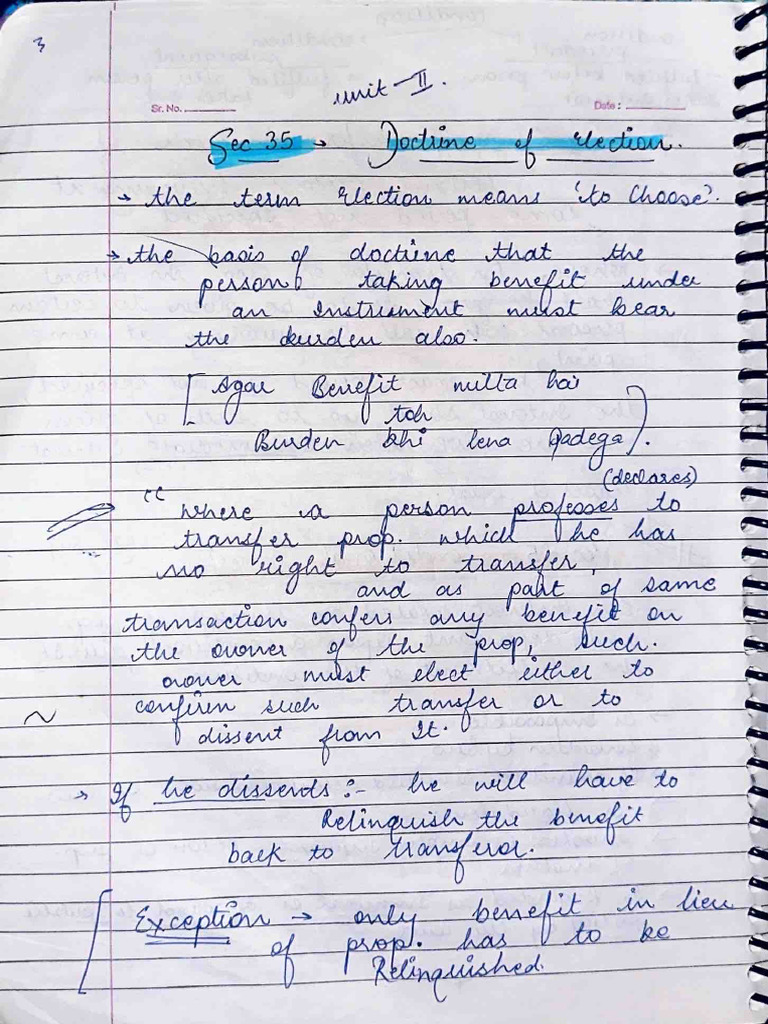 3
unit-II.
Sr. No.
Date :
Sec 35 → Doctrine of election.
→ the term election means 'to choose'.
→ the basis of doctrine that the
person taking benefit under
an instrument must bear
the burden also.
[ Agar Benefit milta hai
toh
Burden bhi lena padega).
(declares)
"where a person professes to
transfer prop. which he has
no right to transfer,
and as part of same
transaction confers any benefit on
the owner of the prop, such.
owner must elect either to
confirm such transfer or to
dissent from It.
→ If he dissends :- he will have to
Relinquish the benefit
back to transferor.
[ Exception → only benefit in lieu
of prop. has to be
Relinquished.